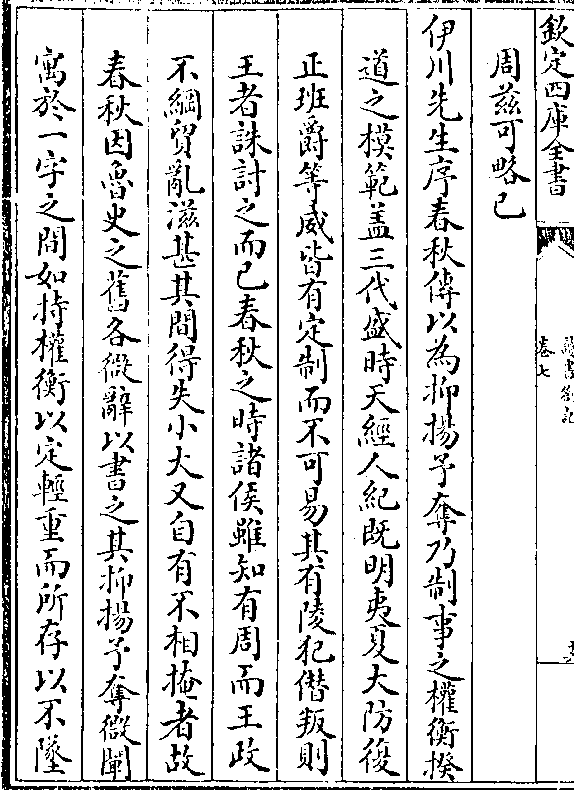 欽定四庫全書
卷七
周兹可略已
伊川先生序春秋傳以為抑揚予奪乃制事之權衡揆
道之模範盖三代盛時天經人紀既明夷夏大防復
正班爵等威皆有定制而不可易其有陵犯僭叛則
王者誅討之而已春秋之時諸侯雖知有周而王政
不綱貿亂滋甚其間得失小大又自有不相掩者故
春秋因魯史之舊各微辭以書之其抑揚予奪微闡
寓於一字之間如持權衡以定輕重而所存以不墜